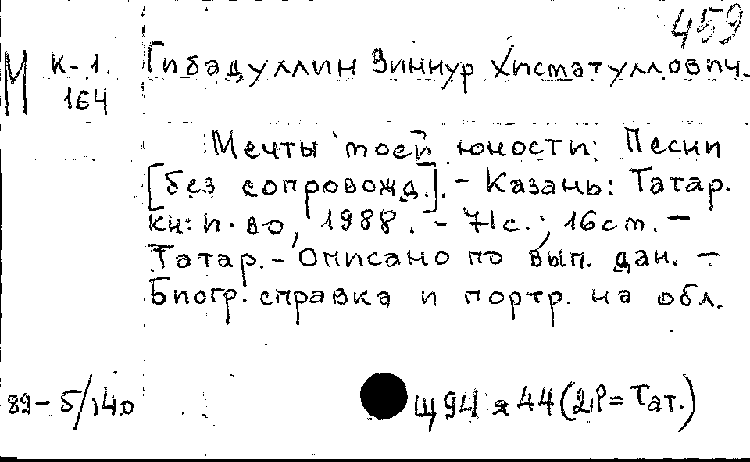 459
М К-1 Гибадуллин Зиннур Хисматуллович.
164
Мечты моей юности: Песни
[без сопровожд.]. - Казань: Татар.
кн. и-во, 1988. - 71с.; 16см. -
Татар. - Описано по вып. дан. -
Биогр. справка и портр. на обл.
89-5/140
Щ94я44(2Р=Тат.)